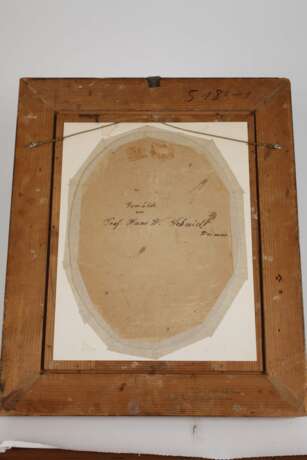 5 18
Gemälde
von
Prof. Hans W. Schmidt
Weimar